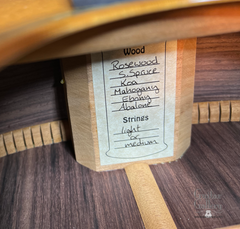 Wood
Rosewood
S. Spruce
Koa
Mahogany
Ebony
Abalone
Strings
light
or
medium